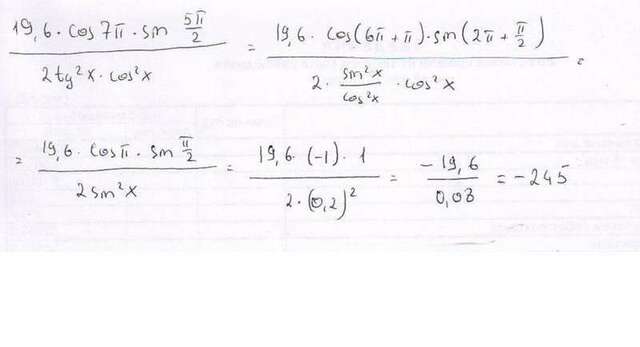 19,6 · cos 7π · sin 5π/2 / 2tg²x · cos²x = 19,6 · cos(6π + π) · sin(2π + π/2) / 2 · sin²x/cos²x · cos²x =
= 19,6 · cos π · sin π/2 / 2 sin²x = 19,6 · (-1) · 1 / 2 · (0,2)² = -19,6 / 0,08 = -245